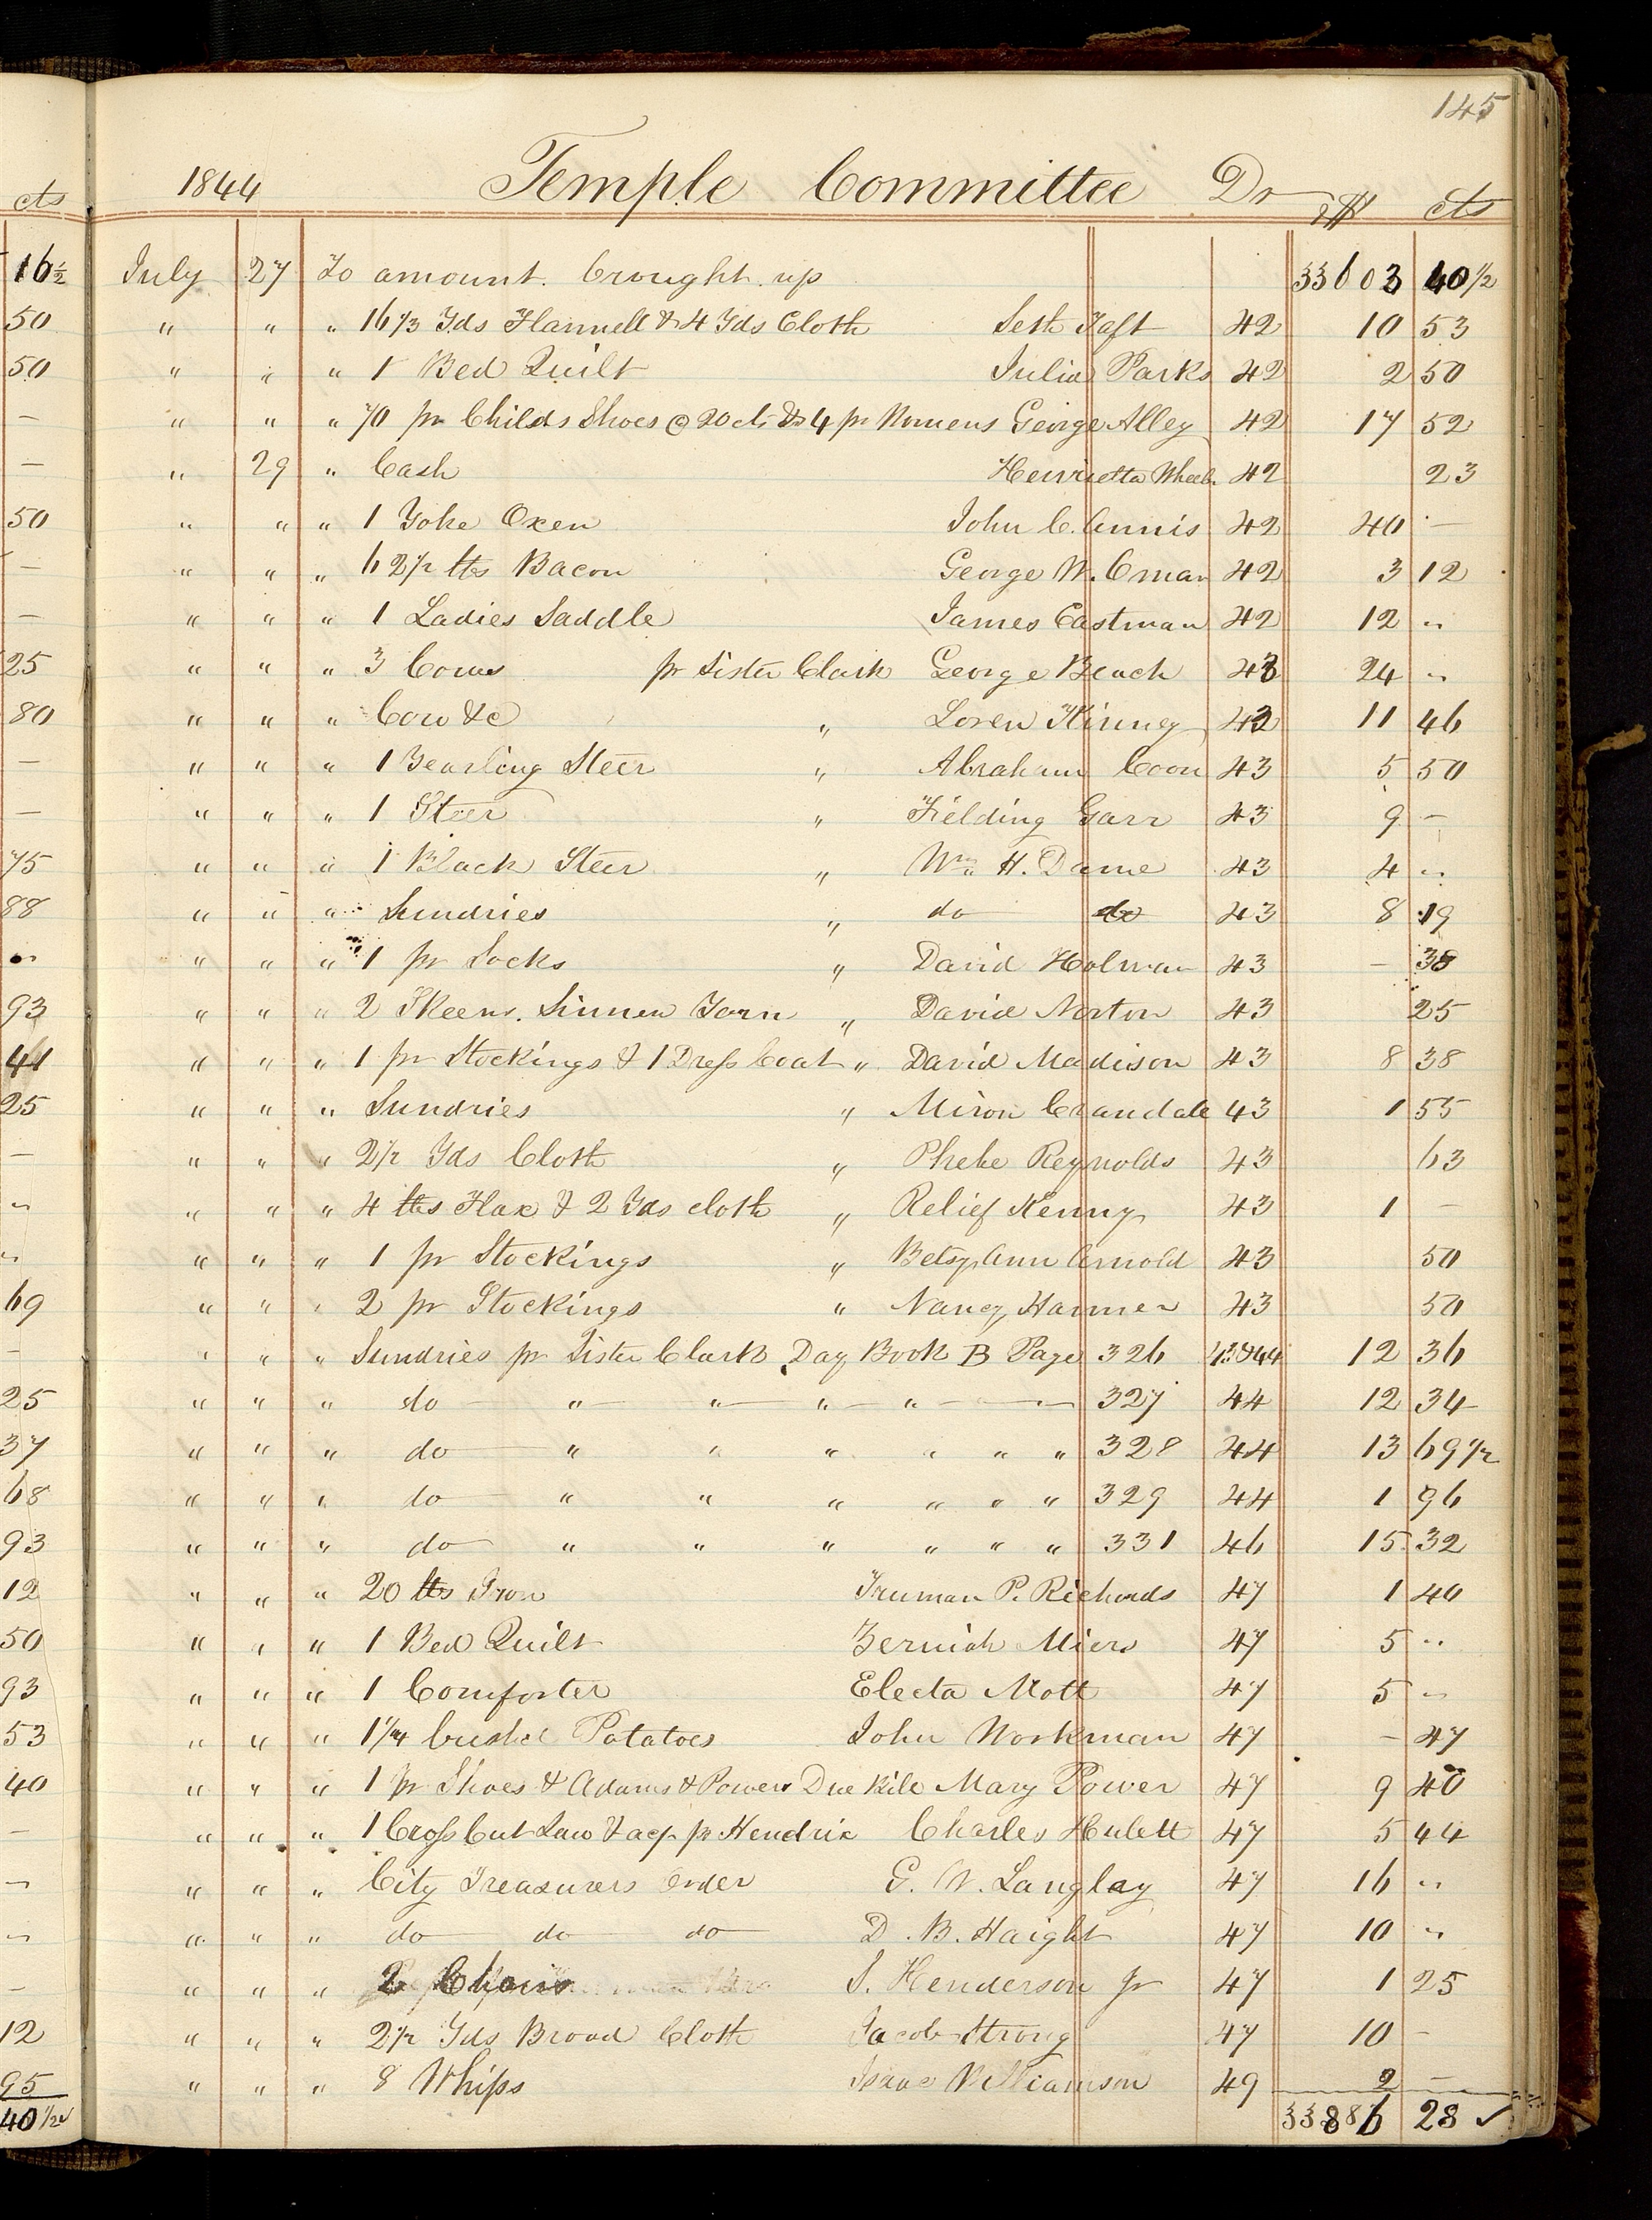 145
1844 Temple Committee Dr $ cts
July 27 To amount brought up 33603 40 1/2
" " " 16 1/3 Yds Flannell & 4 Yds Cloth Seth Taft 42 10 53
" " " 1 Bed Quilt Julia Parks 42 2 50
" " " 70 pr Childs Shoes @ 20 cts & 4 pr Womens George Alley 42 17 52
" 29 " Cash Henrietta Wheelr 42 23
" " " 1 Yoke Oxen John C. Annis 42 40 —
" " " 62 1/2 lbs Bacon George W. Oman 42 3 12
" " " 1 Ladies Saddle James Eastman 42 12 "
" " " 3 Cows pr Sister Clark George Beach 43 24 "
" " " Cow &c " Loren Kinney 42 11 46
" " " 1 Yearling Steer " Abraham Coon 43 5 50
" " " 1 Steer " Fielding Garr 43 9 —
" " " 1 Black Steer " Wm H. Dame 43 4 "
" " " Sundries " do do 43 8 19
" " " 1 pr Socks " David Holman 43 — 38
" " " 2 Skeens Linnen Yarn " David Norton 43 25
" " " 1 pr Stockings & 1 Dress Coat " David Madison 43 8 38
" " " Sundries " Miron Crandall 43 1 55
" " " 2 1/2 Yds Cloth " Phebe Reynolds 43 63
" " " 4 lbs Flax & 2 Yds cloth " Relief Kenny 43 1 —
" " " 1 pr Stockings " Betsy Ann Arnold 43 50
" " " 2 pr Stockings " Nancy Harmer 43 50
" " " Sundries pr Sister Clark Day Book B Page 326 43&44 12 36
" " " do " " " " — 327 44 12 34
" " " do " " " " " " 328 44 13 69 1/2
" " " do " " " " " " 329 44 1 96
" " " do " " " " " " 331 46 15 32
" " " 20 lbs Iron Truman P. Richards 47 1 40
" " " 1 Bed Quilt Zeruiah Miers 47 5 "
" " " 1 Comforter Electa Mott 47 5 "
" " " 1 1/4 bushel Potatoes John Workman 47 — 47
" " " 1 pr Shoes & Adams & Powers Due Bill Mary Power 47 9 40
" " " 1 Cross Cut Saw & ap pr Hendrix Charles Hulett 47 5 44
" " " City Treasurers Order G. W. Langlay 47 16 "
" " " do do do D. B. Haight 47 10 "
" " " 2 Chairs S. Henderson jr 47 1 25
" " " 2 1/2 Yds Broad Cloth Jacob Strong 47 10 —
" " " 8 Whips Isaac Williamson 49 2 —
33886 28 ✓
cts
16 1/2
50
50
—
—
50
—
—
25
80
—
—
75
88
"
93
41
25
—
"
"
69
—
25
37
68
93
12
50
93
53
40
—
"
"
—
12
95
40 1/2 ✓